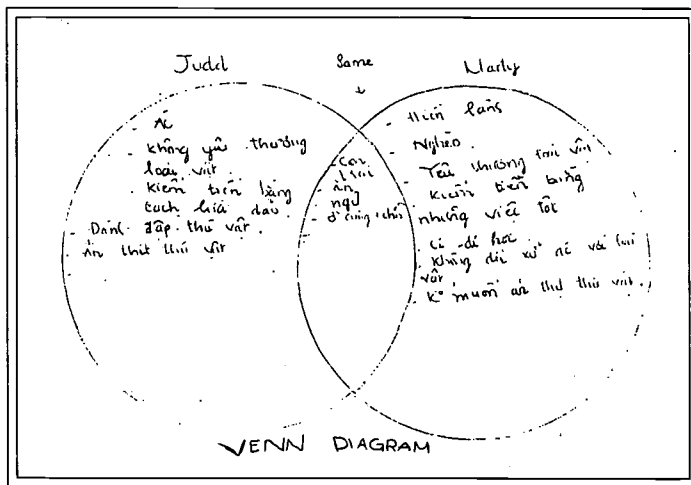 Judd
Same
Marty
- Ác
- không yêu thương
loài vật
- kiếm tiền bằng
cách
- Đánh đập thú vật
- Ăn thịt thú vật
- Con
trai
- ăn
- ngủ
- ở cùng
- Hiền lành
- Nghèo
- Yêu thương loài vật
- kiếm tiền bằng
những việc tốt
- không xử ác với loài
vật
- K muốn ăn thịt thú vật
VENN DIAGRAM